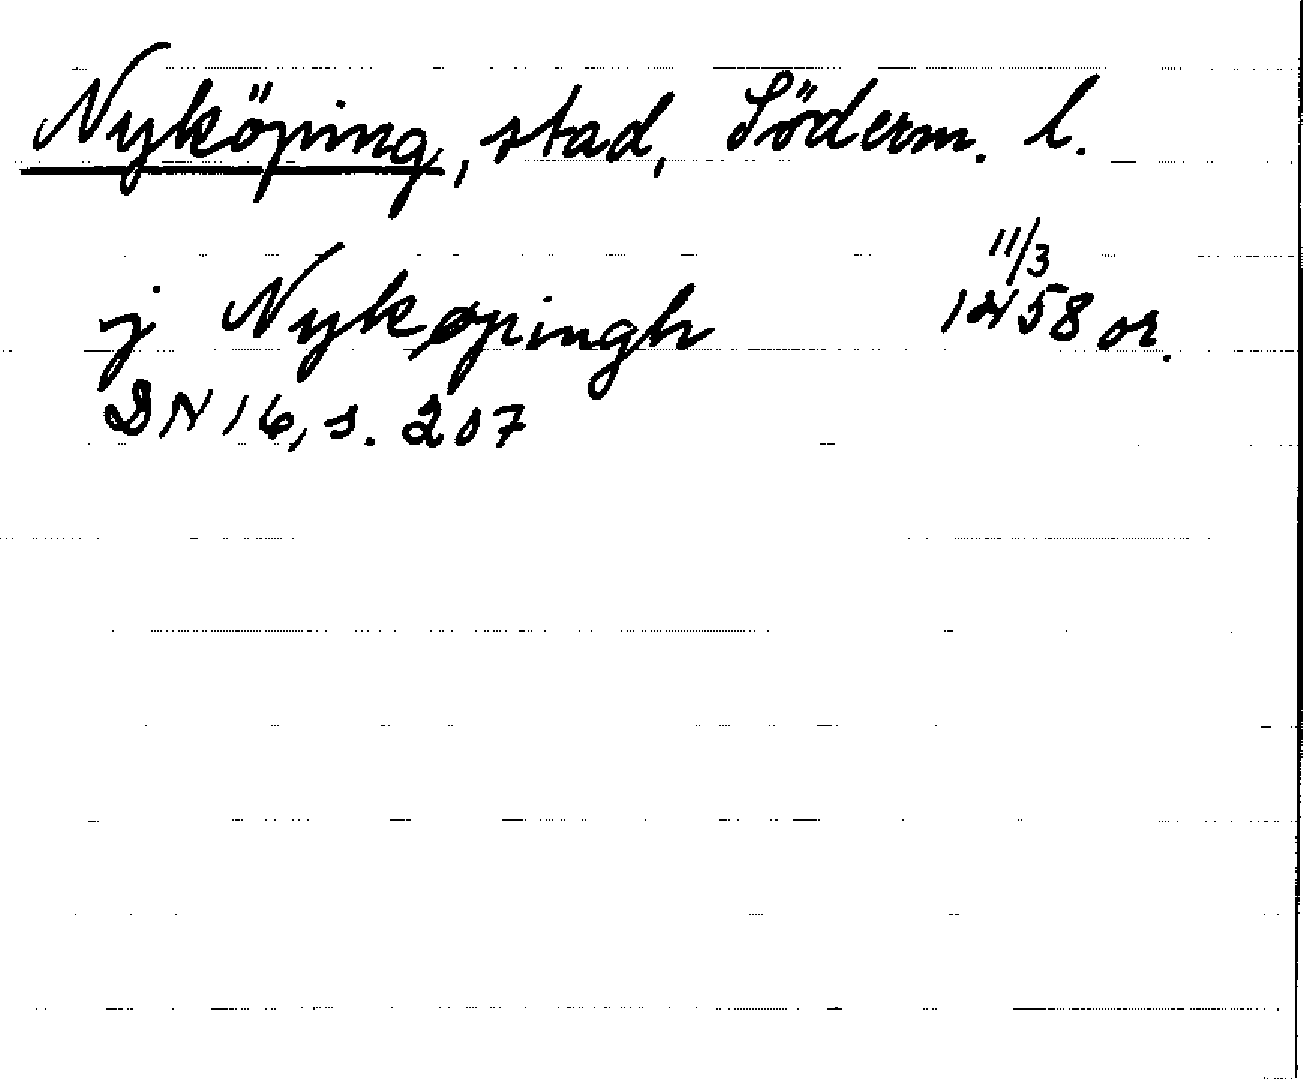 Nyköping, stad, Söderm. l.
11/3
j Nykøpingh 1458 or.
DN 16, s. 207